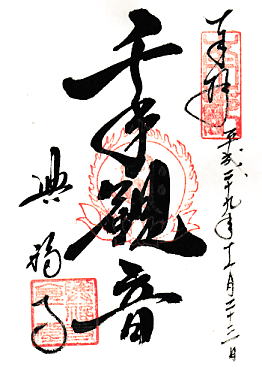 奉拝
平成二十九年十一月二十三日
千手観音
興福寺